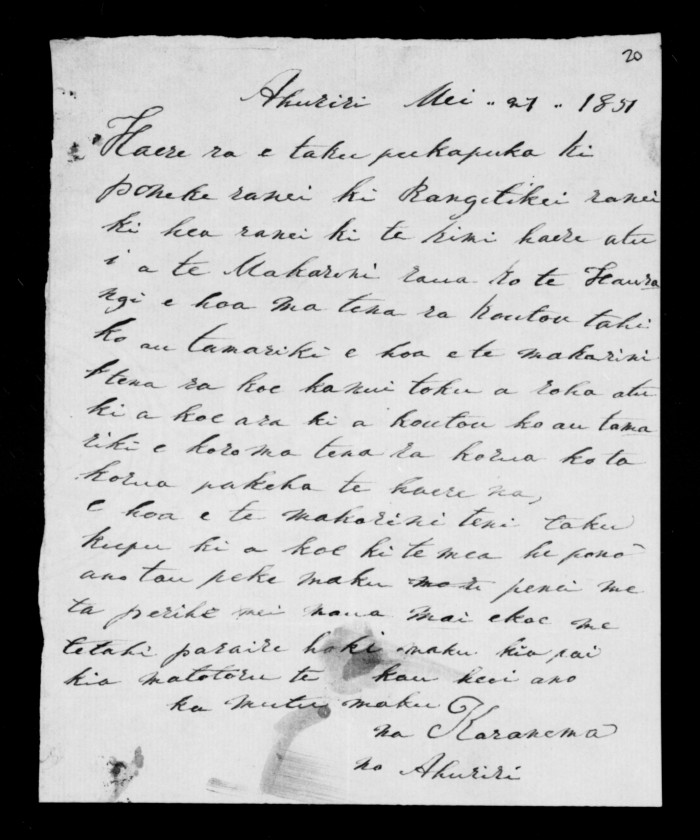 20
Ahuriri Mei .. 27 .. 1851
Haere ra e taku pukapuka ki
poneke ranei ki Rangitikei ranei
ki hea ranei ki te kimi haere atu
i a te Makarini raua ko te Haura
ngi e hoa ma tena ra koutou tahi
ko au tamariki e hoa e te makarini
tena ra koe ka nui toku a roha atu
ki a koe ara ki a koutou ko au tama
riki e koro ma tena ra korua ko ta
korua pakeha te haere na,
e hoa e te makarini tenei taku
kupu ki a koe ki te mea he pono
ano tau peke maku penei me
ta perihe nei maua mai e koe me
tetahi paraire hoki maku kia pai
kia matotoru te kau heoi ano
ka mutu maku
na Karanema
no Ahuriri